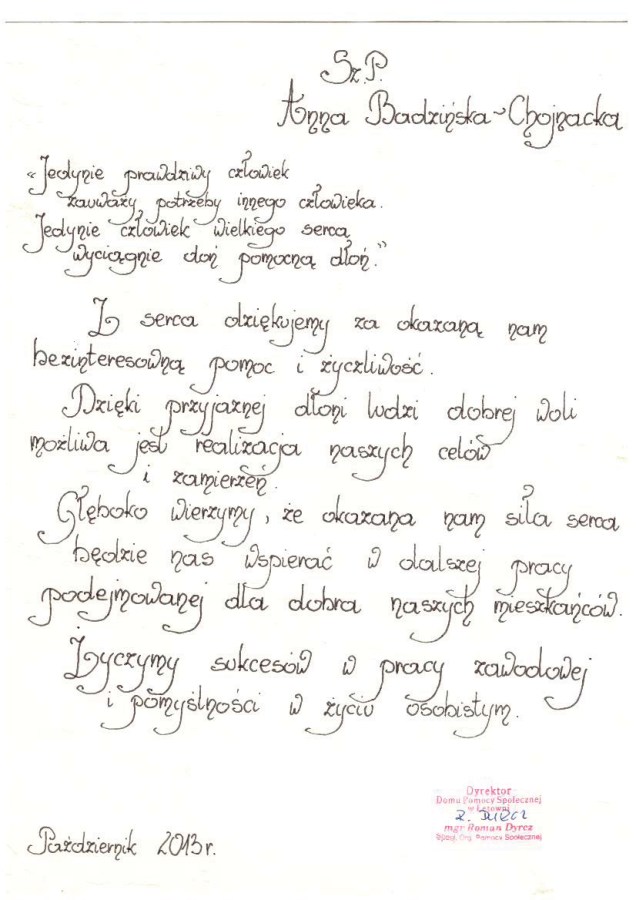 Sz.P.
Anna Badzińska-Chojnacka
„Jedynie prawdziwy człowiek
zauważy potrzeby innego człowieka.
Jedynie człowiek wielkiego serca
wyciągnie doń pomocną dłoń."
Z serca dziękujemy za okazaną nam
bezinteresowną pomoc i życzliwość.
Dzięki przyjaznej dłoni ludzi dobrej woli
możliwa jest realizacja naszych celów
i zamierzeń.
Głęboko wierzymy, że okazana nam siła serca
będzie nas wspierać w dalszej pracy
podejmowanej dla dobra naszych mieszkańców.
Życzymy sukcesów w pracy zawodowej
i pomyślności w życiu osobistym.
Dyrektor
Domu Pomocy Społecznej
w Łętowni
R. Dyrcz
mgr Roman Dyrcz
Org. Pomocy Społecznej
Październik 2013 r.